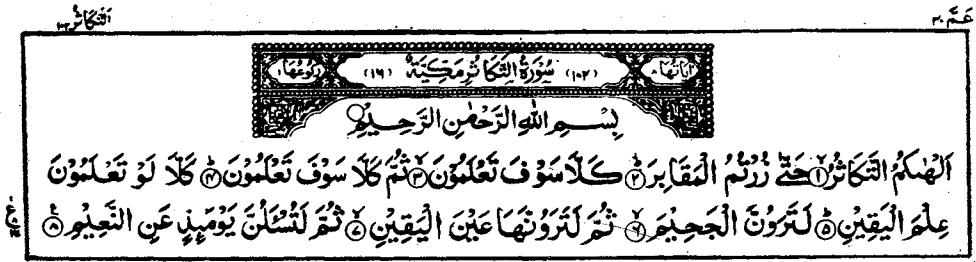 عَمَّ ٣٠ التَّكَاثُر ١٠٢
اٰيَاتُهَا ٨ (١٠٢) سُوْرَةُ التَّكَاثُرِ مَكِّيَّةٌ (١٦) رُكُوْعُهَا ١
بِسْمِ اللّٰهِ الرَّحْمٰنِ الرَّحِيْمِ
اَلْهٰىكُمُ التَّكَاثُرُ ۙ﴿١﴾ حَتّٰى زُرْتُمُ الْمَقَابِرَ ؕ﴿٢﴾ كَلَّا سَوْفَ تَعْلَمُوْنَ ۙ﴿٣﴾ ثُمَّ كَلَّا سَوْفَ تَعْلَمُوْنَ ؕ﴿٤﴾ كَلَّا لَوْ تَعْلَمُوْنَ
عِلْمَ الْيَقِيْنِ ؕ﴿٥﴾ لَتَرَوُنَّ الْجَحِيْمَ ۙ﴿٦﴾ ثُمَّ لَتَرَوُنَّهَا عَيْنَ الْيَقِيْنِ ۙ﴿٧﴾ ثُمَّ لَتُسْـَٔلُنَّ يَوْمَىِٕذٍ عَنِ النَّعِيْمِ ﴿٨﴾